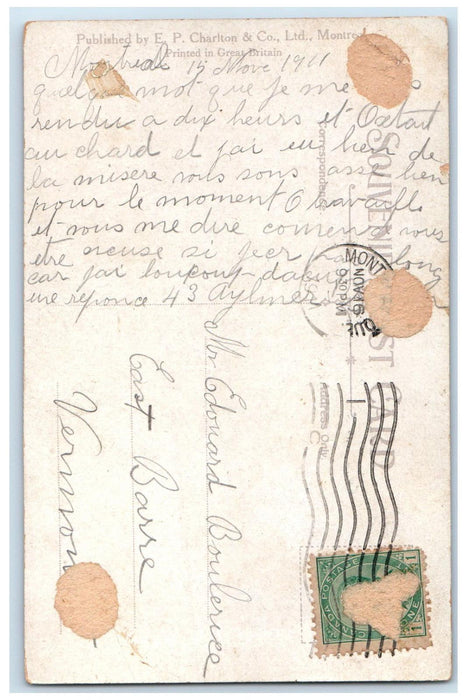 Published by E. P. Charlton & Co., Ltd., Montreal
Printed in Great Britain
Montreal 15 Nove 1911
quelque mot que je me
rendu a dix heurs et
au chard et jai eu bien de
la misere nous sons asse bien
pour le moment O travaille
et vous me dire comence vous
ete si jecr long
car jai loucoup
une reponce 43 Aylmer
Correspondence
SOUVENIR POST CARD
Address Only
MONT
9 30 PM
NOV 16
QUE
Mr Edouard Boulerice
East Barre
Vermon
CANADA POSTAGE
1
ONE
1